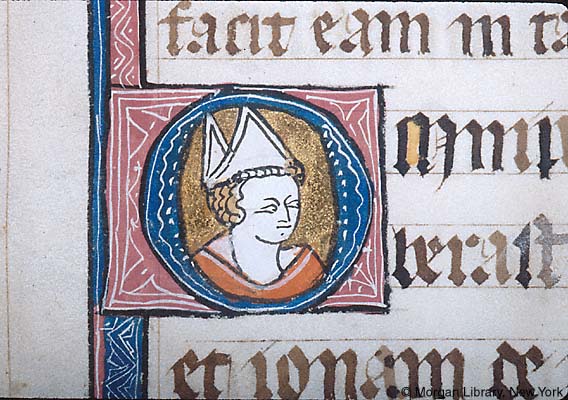 facit eam in ta
Omnip
berast
et ionam de
© Morgan Library, New York